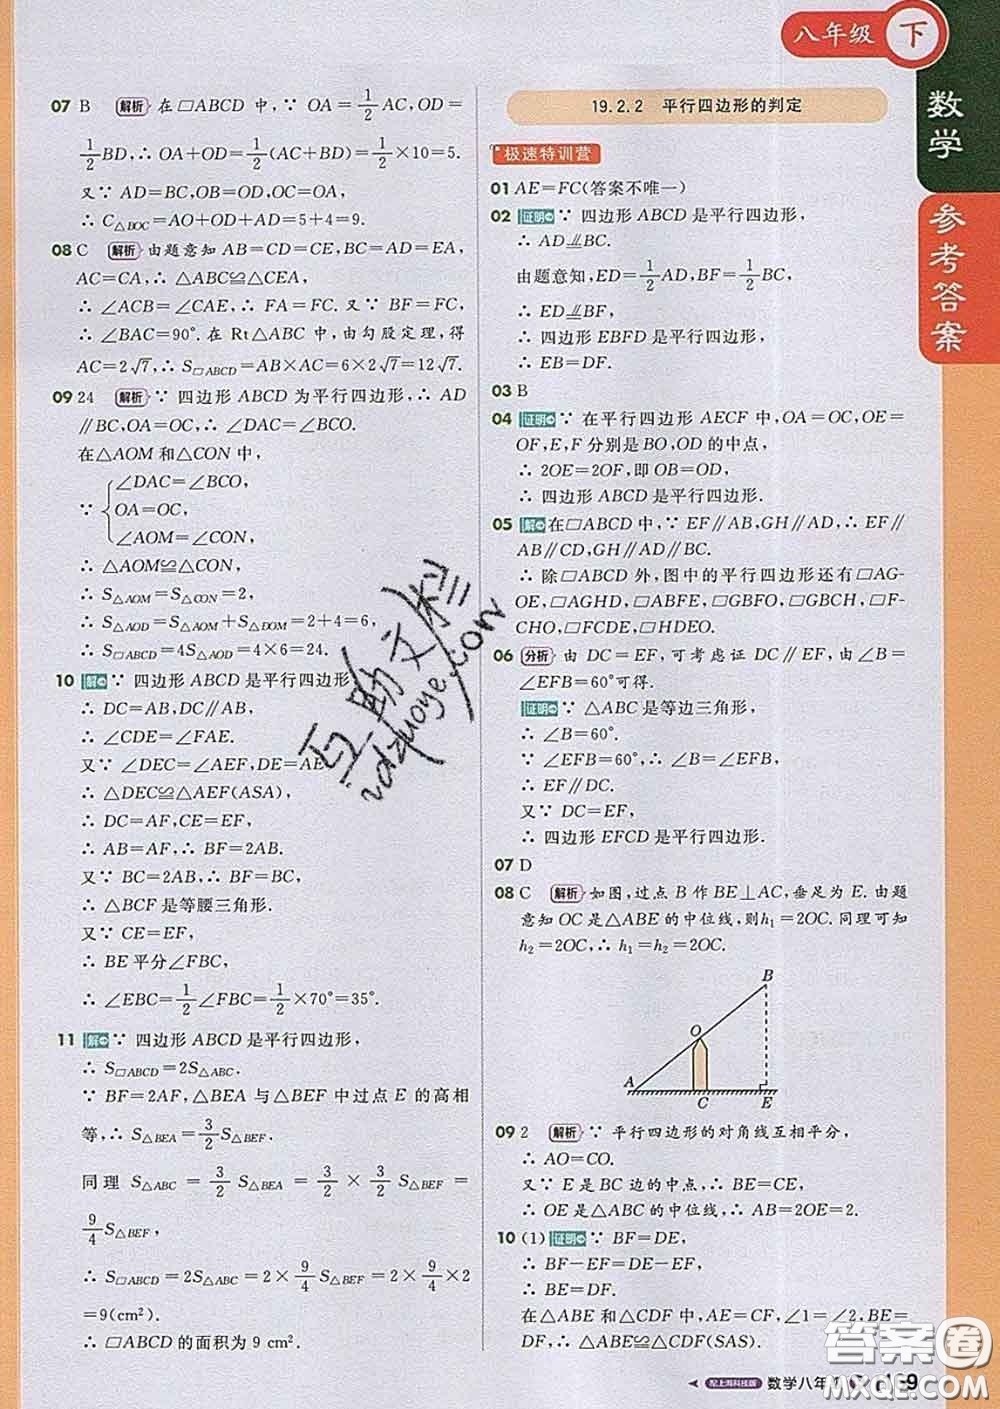 八年级 下
数学
参考答案
07 B 解析 在▱ABCD 中,∵ OA=1/2AC,OD=
1/2BD,∴ OA+OD=1/2(AC+BD)=1/2×10=5.
又∵ AD=BC,OB=OD,OC=OA,
∴ C△BOC=AO+OD+AD=5+4=9.
08 C 解析 由题意知 AB=CD=CE,BC=AD=EA,
AC=CA,∴ △ABC≌△CEA,
∴ ∠ACB=∠CAE,∴ FA=FC. 又∵ BF=FC,
∴ ∠BAC=90°. 在 Rt△ABC 中,由勾股定理,得
AC=2√7,∴ S▱ABCD=AB×AC=6×2√7=12√7.
09 24 解析 ∵ 四边形 ABCD 为平行四边形,∴ AD
∥BC,OA=OC,∴ ∠DAC=∠BCO.
在△AOM 和△CON 中,
∵ { ∠DAC=∠BCO,
OA=OC,
∠AOM=∠CON,
∴ △AOM≌△CON,
∴ S△AOM=S△CON=2,
∴ S△AOD=S△AOM+S△DOM=2+4=6,
∴ S▱ABCD=4S△AOD=4×6=24.
10 解 ∵ 四边形 ABCD 是平行四边形
∴ DC=AB,DC∥AB,
∴ ∠CDE=∠FAE.
又∵ ∠DEC=∠AEF,DE=AE
∴ △DEC≌△AEF(ASA),
∴ DC=AF,CE=EF,
∴ AB=AF,∴ BF=2AB.
又∵ BC=2AB,∴ BF=BC,
∴ △BCF 是等腰三角形.
又∵ CE=EF,
∴ BE 平分∠FBC,
∴ ∠EBC=1/2∠FBC=1/2×70°=35°.
11 解 ∵ 四边形 ABCD 是平行四边形,
∴ S▱ABCD=2S△ABC.
∵ BF=2AF,△BEA 与△BEF 中过点 E 的高相
等,∴ S△BEA=3/2S△BEF.
同理 S△ABC=3/2S△BEA=3/2×3/2S△BEF=
9/4S△BEF,
∴ S▱ABCD=2S△ABC=2×9/4S△BEF=2×9/4×2
=9(cm²).
∴ ▱ABCD 的面积为 9 cm².
19.2.2 平行四边形的判定
极速特训营
01 AE=FC(答案不唯一)
02 证明 ∵ 四边形 ABCD 是平行四边形,
∴ AD⫽BC.
由题意知,ED=1/2AD,BF=1/2BC,
∴ ED⫽BF,
∴ 四边形 EBFD 是平行四边形,
∴ EB=DF.
03 B
04 证明 ∵ 在平行四边形 AECF 中,OA=OC,OE=
OF,E,F 分别是 BO,OD 的中点,
∴ 2OE=2OF,即 OB=OD,
∴ 四边形 ABCD 是平行四边形.
05 解 在▱ABCD 中,∵ EF∥AB,GH∥AD,∴ EF∥
AB∥CD,GH∥AD∥BC.
∴ 除▱ABCD 外,图中的平行四边形还有▱AG-
OE,▱AGHD,▱ABFE,▱GBFO,▱GBCH,▱F-
CHO,▱FCDE,▱HDEO.
06 分析 由 DC=EF,可考虑证 DC∥EF,由∠B=
∠EFB=60°可得.
证明 ∵ △ABC 是等边三角形,
∴ ∠B=60°.
∵ ∠EFB=60°,∴ ∠B=∠EFB,
∴ EF∥DC.
又∵ DC=EF,
∴ 四边形 EFCD 是平行四边形.
07 D
08 C 解析 如图,过点 B 作 BE⊥AC,垂足为 E. 由题
意知 OC 是△ABE 的中位线,则h₁=2OC. 同理可知
h₂=2OC,∴ h₁=h₂=2OC.
B
O
A C E
09 2 解析 ∵ 平行四边形的对角线互相平分,
∴ AO=CO.
又∵ E 是 BC 边的中点,∴ BE=CE,
∴ OE 是△ABC 的中位线,∴ AB=2OE=2.
10 (1) 证明 ∵ BF=DE,
∴ BF-EF=DE-EF,
∴ BE=DF.
在△ABE 和△CDF 中,AE=CF,∠1=∠2,BE=
DF,∴ △ABE≌△CDF(SAS).
配上海科技版 数学八年
答案圈